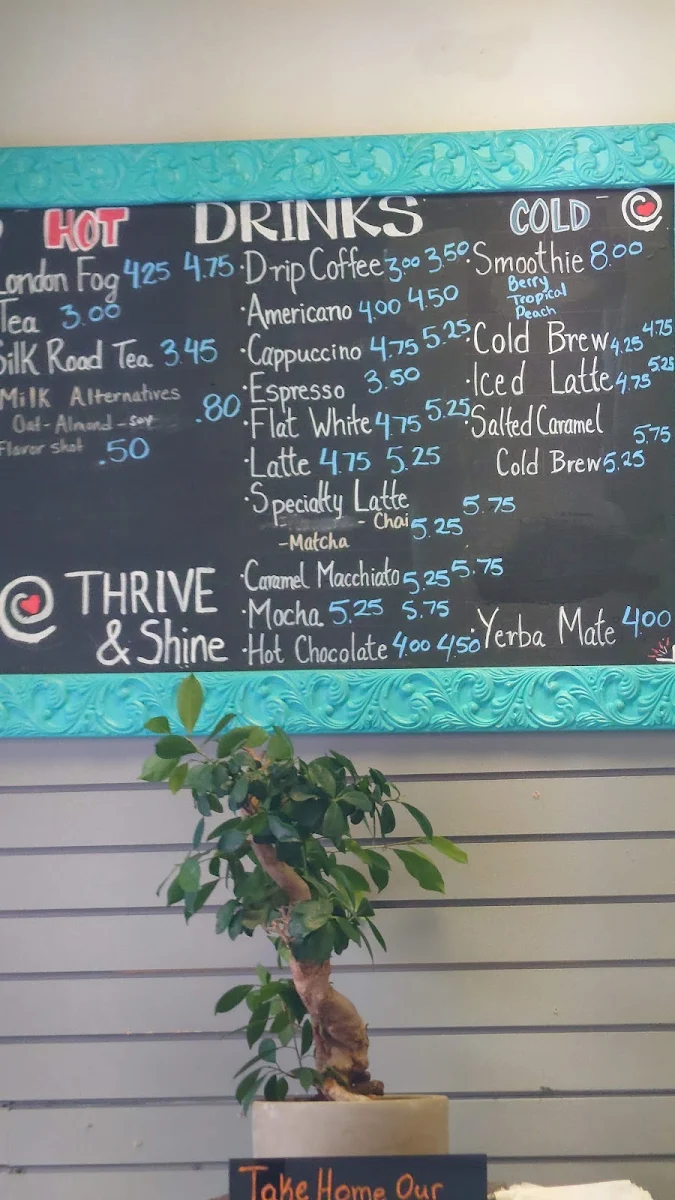 HOT DRINKS COLD
London Fog 4.25 4.75
Tea 3.00
Silk Road Tea 3.45
Milk Alternatives .80
Oat-Almond-Soy
Flavor shot .50
THRIVE
& Shine
·Drip Coffee 3.00 3.50
·Americano 4.00 4.50
·Cappuccino 4.75 5.25
·Espresso 3.50
·Flat White 4.75 5.25
·Latte 4.75 5.25
·Specialty Latte
- Chai 5.25 5.75
-Matcha
·Caramel Macchiato 5.25 5.75
·Mocha 5.25 5.75
·Hot Chocolate 4.00 4.50
·Smoothie 8.00
Berry
Tropical
Peach
·Cold Brew 4.25 4.75
·Iced Latte 4.75 5.25
·Salted Caramel
Cold Brew 5.25 5.75
·Yerba Mate 4.00
Take Home Our